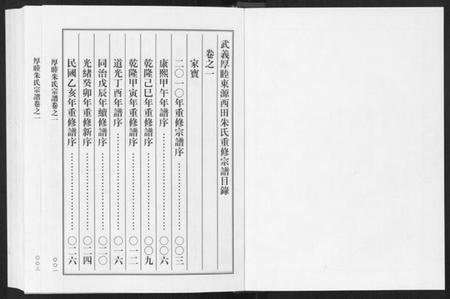 武義厚睦東源西田朱氏重修宗譜目錄
卷之一
家寶
二〇一〇年重修宗譜序……〇〇三
康熙甲午年譜序……〇〇六
乾隆己巳年重修譜序……〇〇九
乾隆甲寅年重修譜序……〇一二
道光丁酉年譜序……〇一六
同治戊辰年續修譜序……〇二〇
光緒癸卯年重修新序……〇二四
民國乙亥年重修譜序……〇二六
厚睦朱氏宗譜卷之一
〇〇一
厚睦朱氏宗譜卷之一
〇〇二